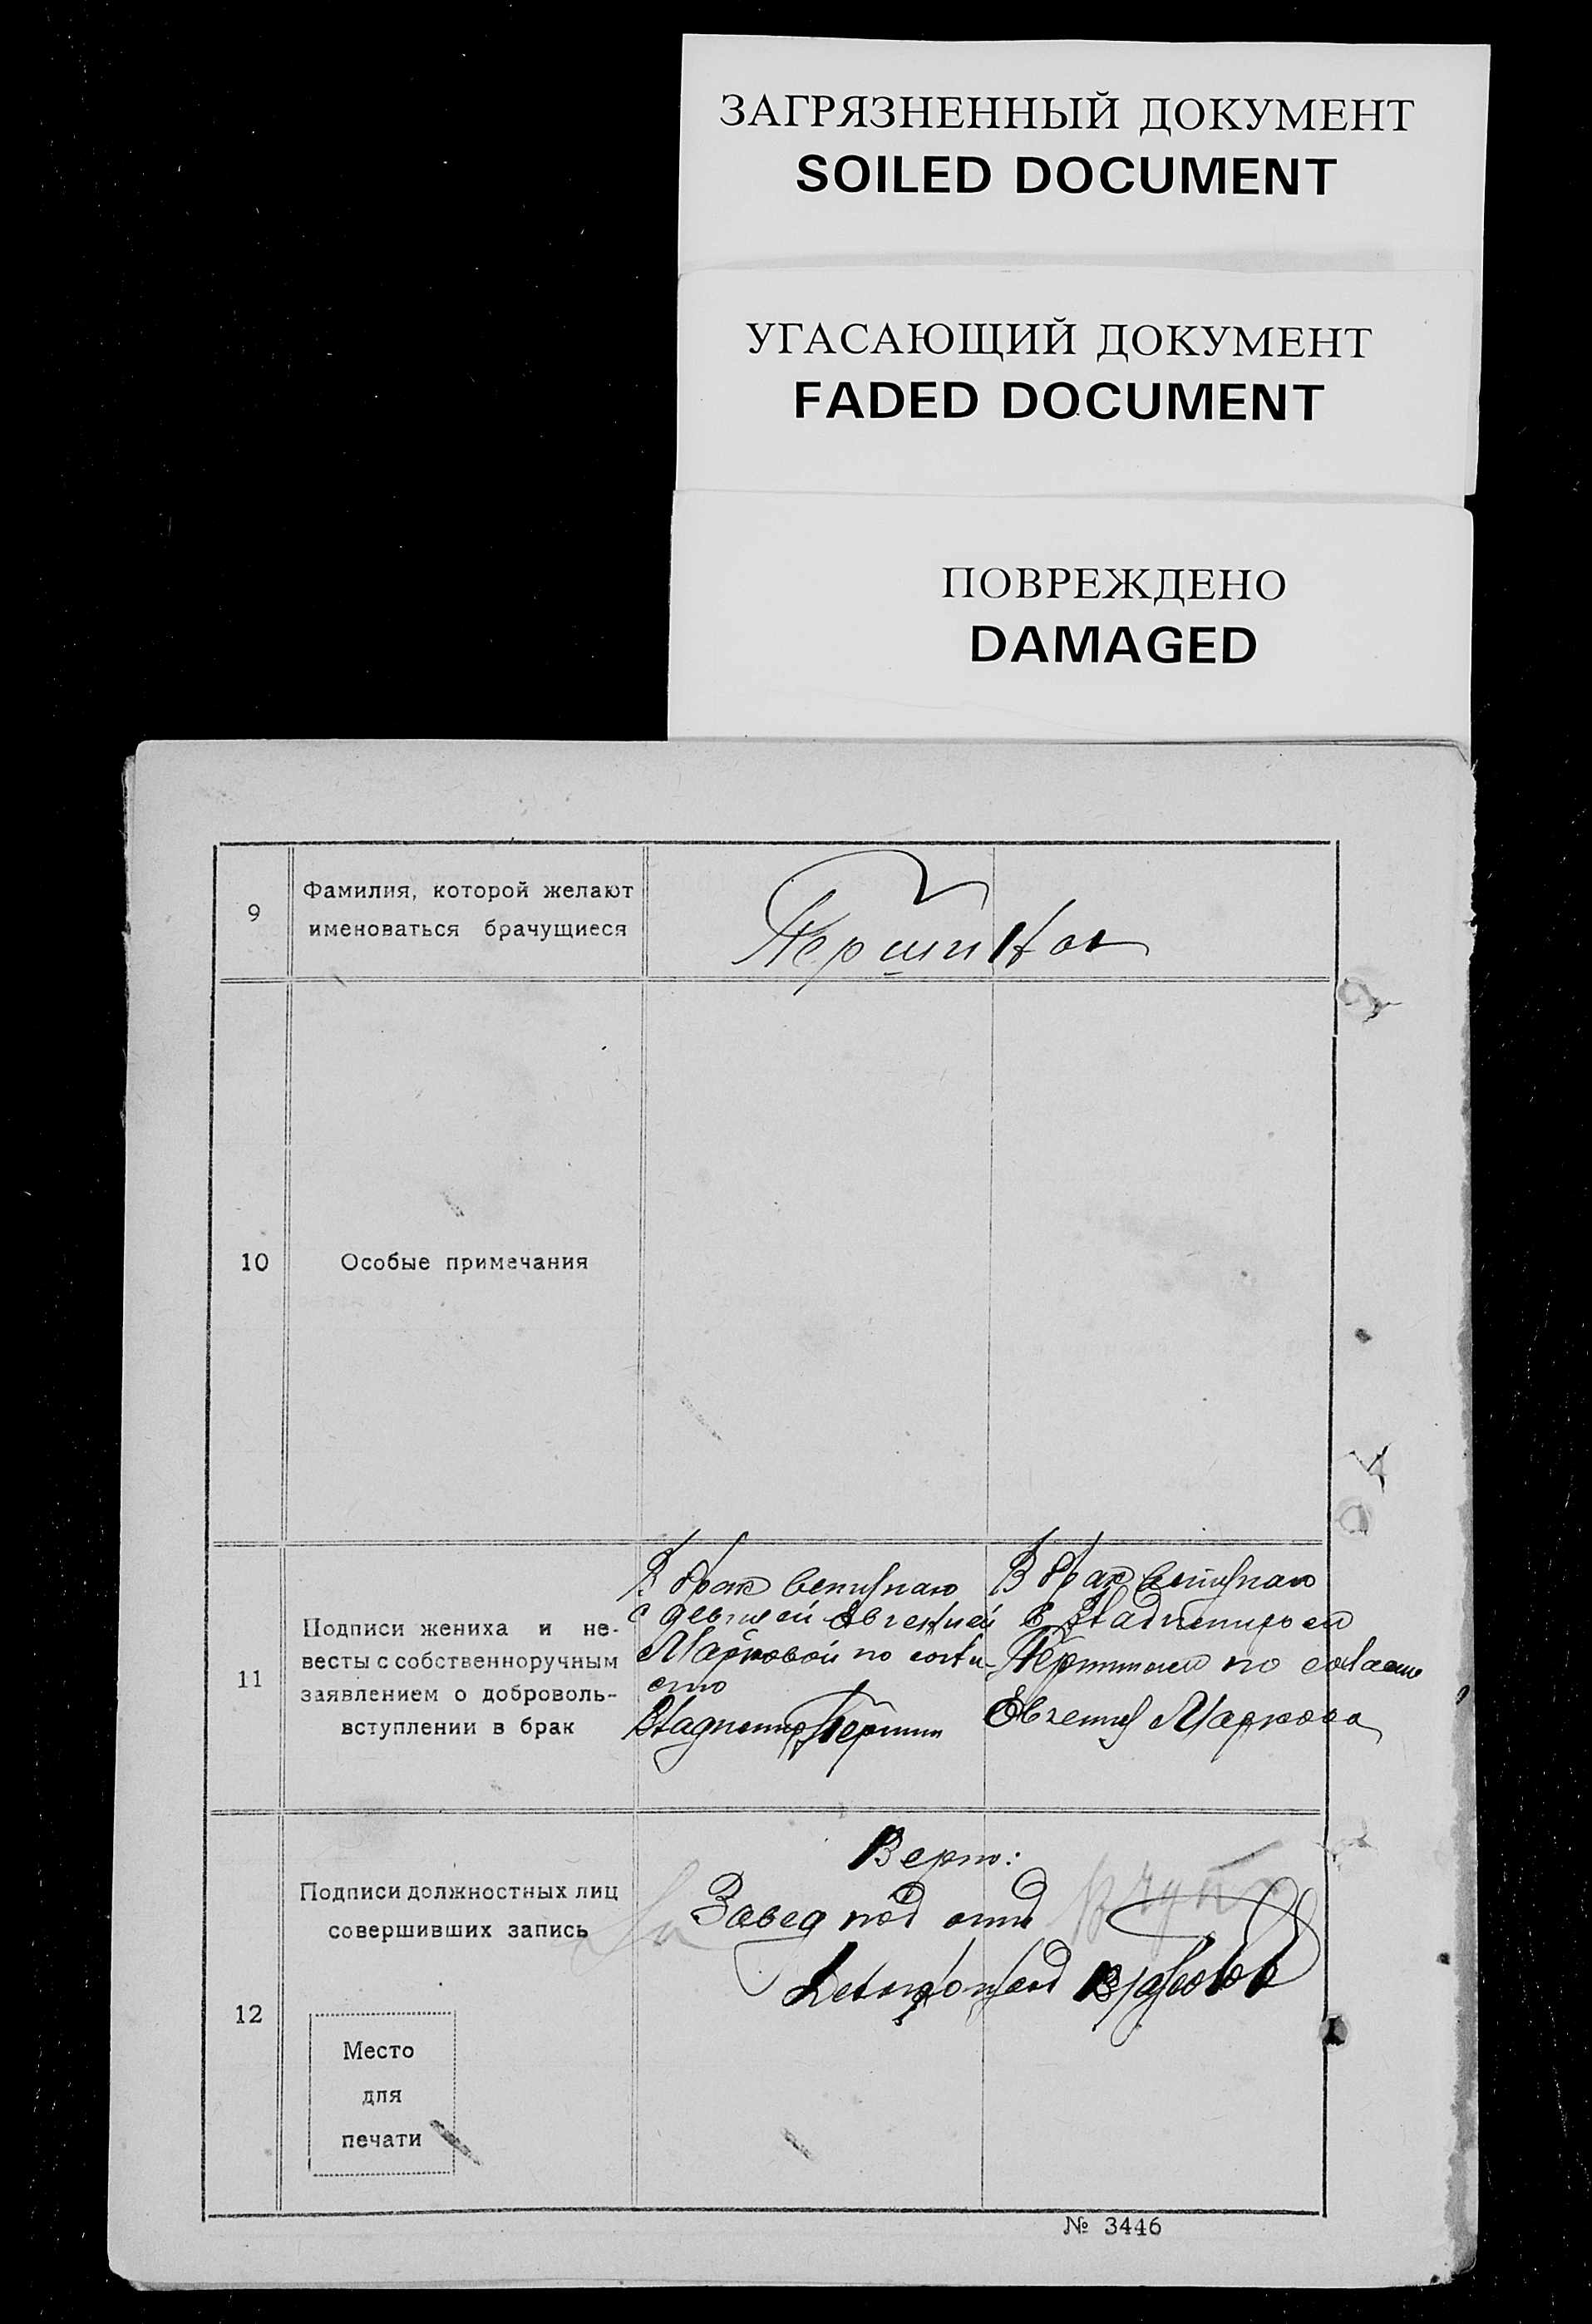 ЗАГРЯЗНЕННЫЙ ДОКУМЕНТ
SOILED DOCUMENT
УГАСАЮЩИЙ ДОКУМЕНТ
FADED DOCUMENT
ПОВРЕЖДЕНО
DAMAGED
9
Фамилия, которой желают
именоваться брачущиеся
10
Особые примечания
11
Подписи жениха и не-
весты с собственноручным
заявлением о доброволь-
вступлении в брак
В брак вступаю
с девицей Евгенией
Марковой по
Владимир
В брак вступаю
с Владимиром
по
Евгения Маркова
12
Подписи должностных лиц
совершивших запись
Верно:
Завед под отд
Место
для
печати
№ 3446